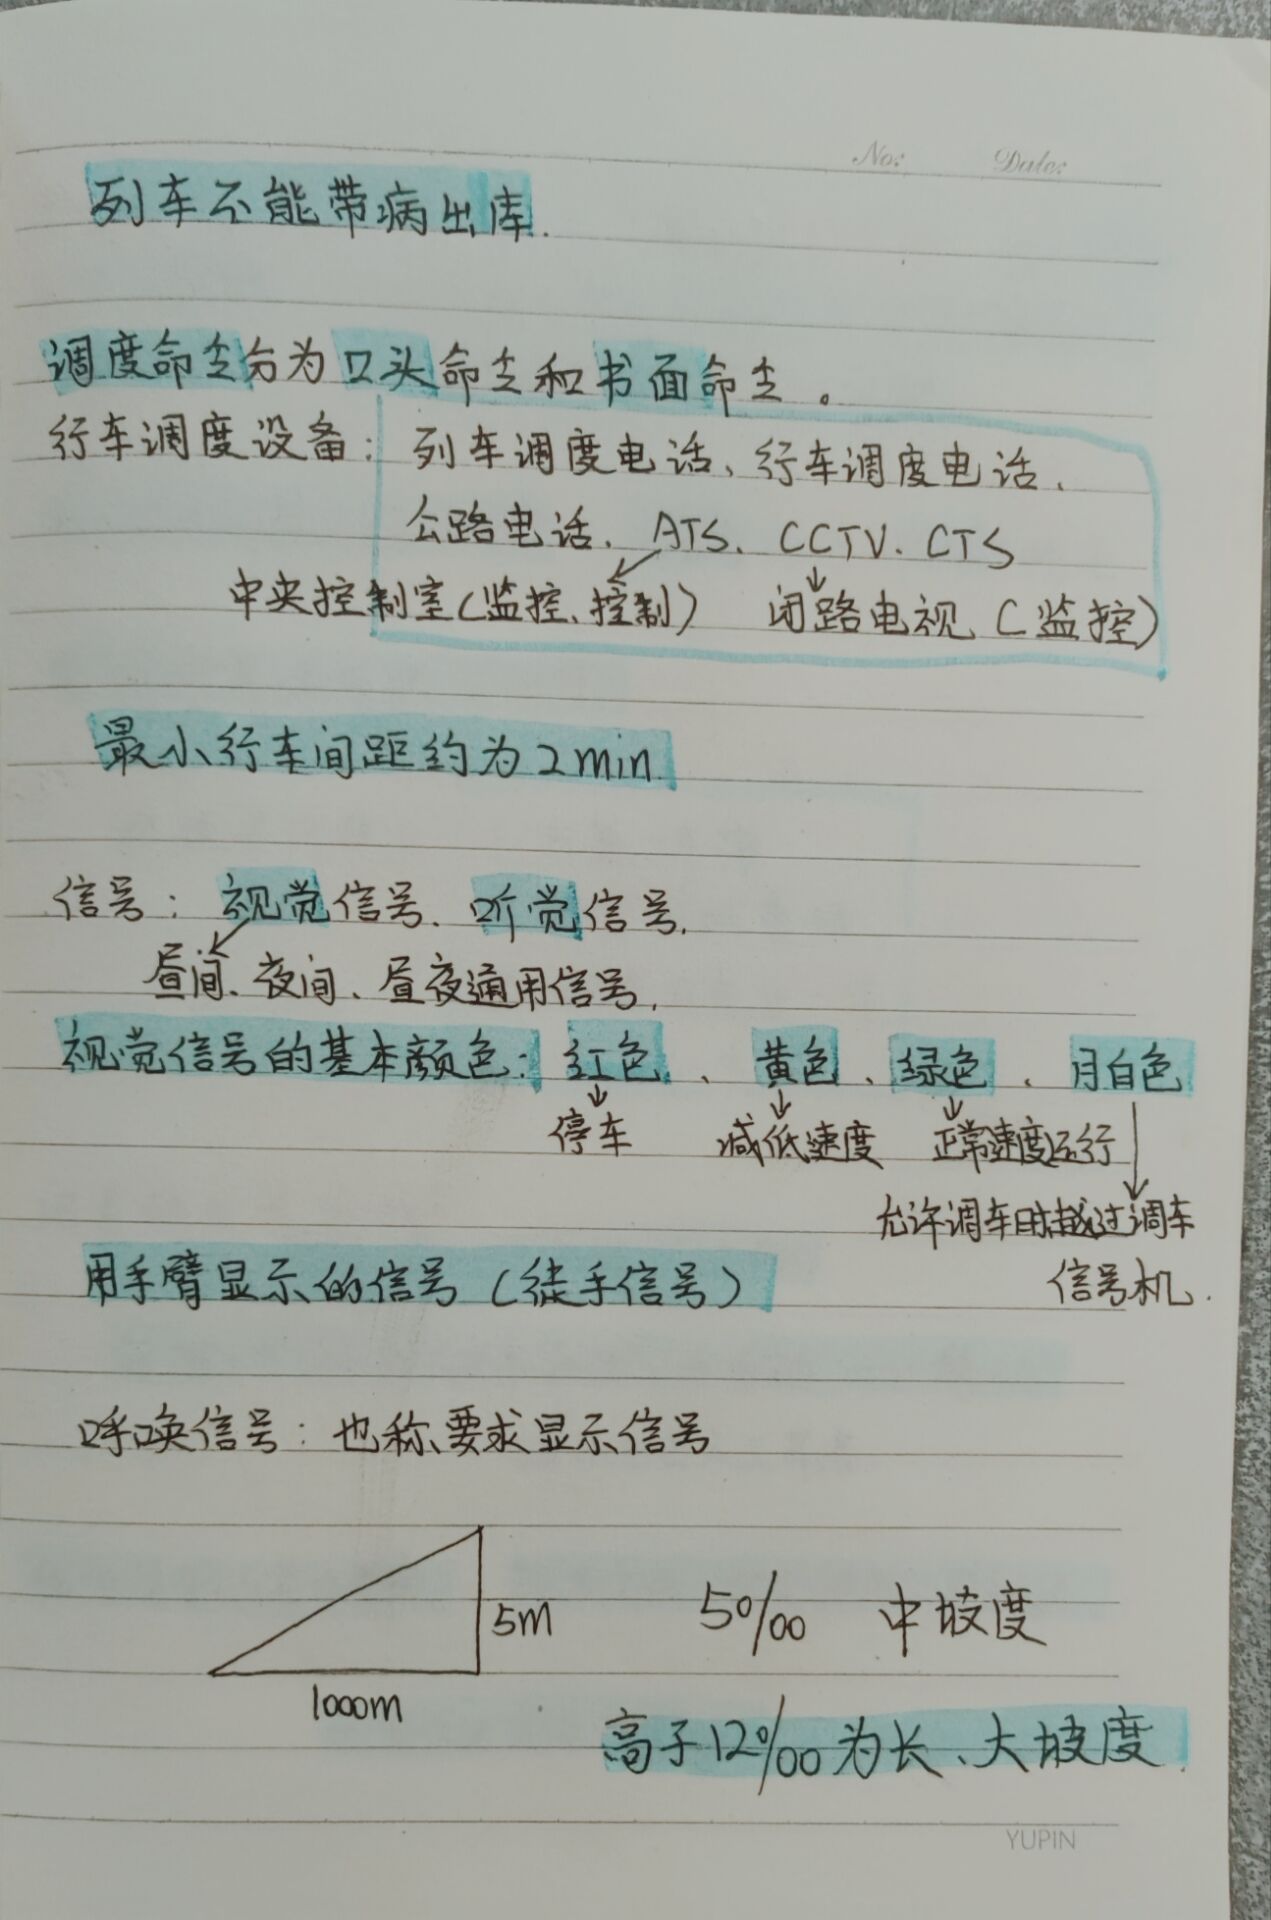 No: Date:
列车不能带病出库.
调度命令分为口头命令和书面命令。
行车调度设备: 列车调度电话、行车调度电话、
公路电话、ATS、CCTV、CTS
中央控制室(监控、控制) 闭路电视(监控)
最小行车间距约为2min.
信号: 视觉信号、听觉信号.
昼间、夜间、昼夜通用信号.
视觉信号的基本颜色: 红色、黄色、绿色、月白色
停车 减低速度 正常速度运行
允许调车时越过调车
信号机.
用手臂显示的信号(徒手信号)
呼唤信号: 也称要求显示信号
5m 5‰ 中坡度
1000m
高于12‰为长、大坡度.
YUPIN